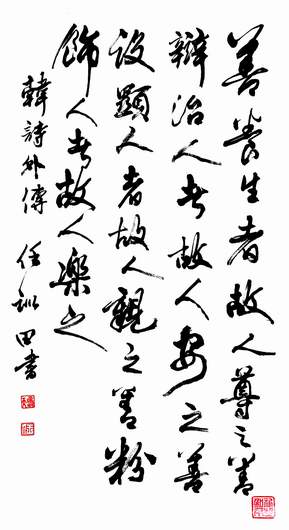 善養生者故人尊之善
辯治人者故人安之善
設顯人者故人親之善粉
飾人者故人樂之
韓詩外傳 任田書